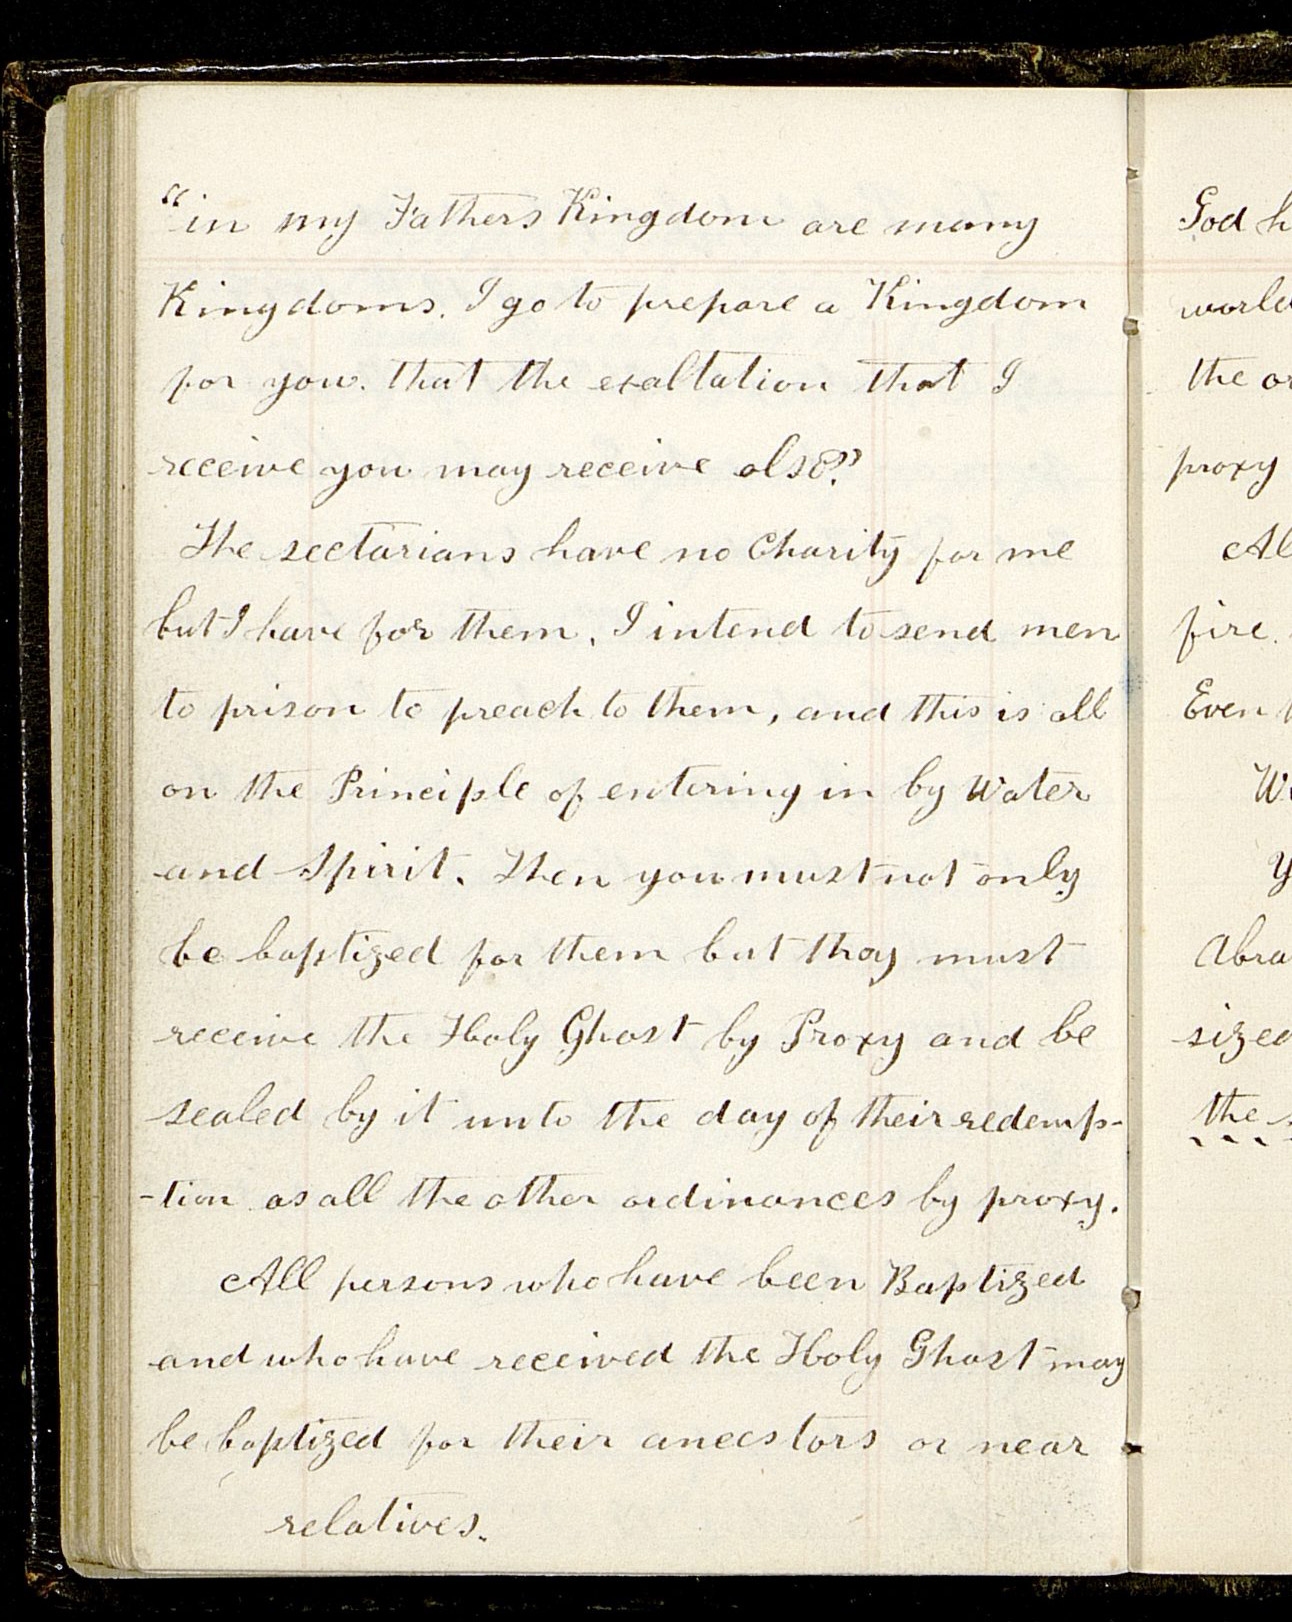 "in my Fathers Kingdom are many
Kingdoms. I go to prepare a Kingdom
for you. that the exaltation that I
receive you may receive also?"
The sectarians have no Charity for me
but I have for them. I intend to send men
to prison to preach to them, and this is all
on the Principle of entering in by Water
and Spirit. Then you must not only
be baptized for them but thay must
receive the Holy Ghost by Proxy and be
sealed by it unto the day of their redemp-
-tion as all the other ordinances by proxy.
All persons who have been Baptized
and who have received the Holy Ghost may
be baptized for their ancestors or near
relatives.
God h
world
the or
proxy
Al
fire.
Even
W
Y
Abra
sized
the